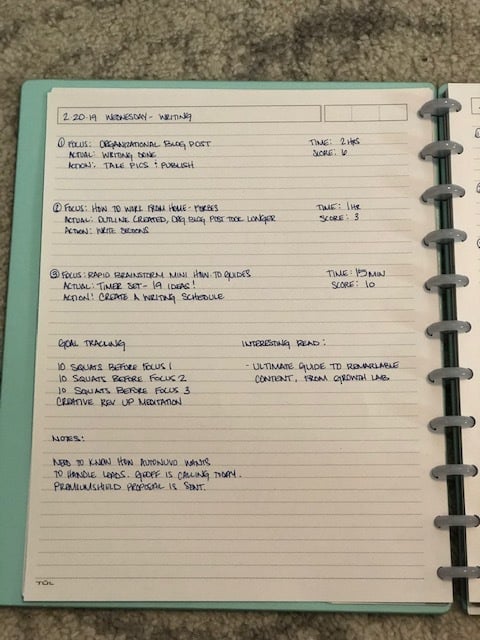 2-20-19 WEDNESDAY - WRITING
① FOCUS: ORGANIZATIONAL BLOG POST TIME: 2 HRS
ACTUAL: WRITING DONE SCORE: 6
ACTION: TAKE PICS & PUBLISH
② FOCUS: HOW TO WORK FROM HOME - FORBES TIME: 1 HR
ACTUAL: OUTLINE CREATED, ORG BLOG POST TOOK LONGER SCORE: 3
ACTION: WRITE SECTIONS
③ FOCUS: RAPID BRAINSTORM MINI HOW-TO GUIDES TIME: 15 MIN
ACTUAL: TIMER SET - 19 IDEAS! SCORE: 10
ACTION: CREATE A WRITING SCHEDULE
GOAL TRACKING INTERESTING READ:
10 SQUATS BEFORE FOCUS 1 - ULTIMATE GUIDE TO REMARKABLE
10 SQUATS BEFORE FOCUS 2 CONTENT, FROM GROWTH LAB
10 SQUATS BEFORE FOCUS 3
CREATIVE REV UP MEDITATION
NOTES:
NEED TO KNOW HOW AUTONUVO WANTS
TO HANDLE LEADS. GEOFF IS CALLING TODAY.
PREMIUMSHIELD PROPOSAL IS SENT.
TUL